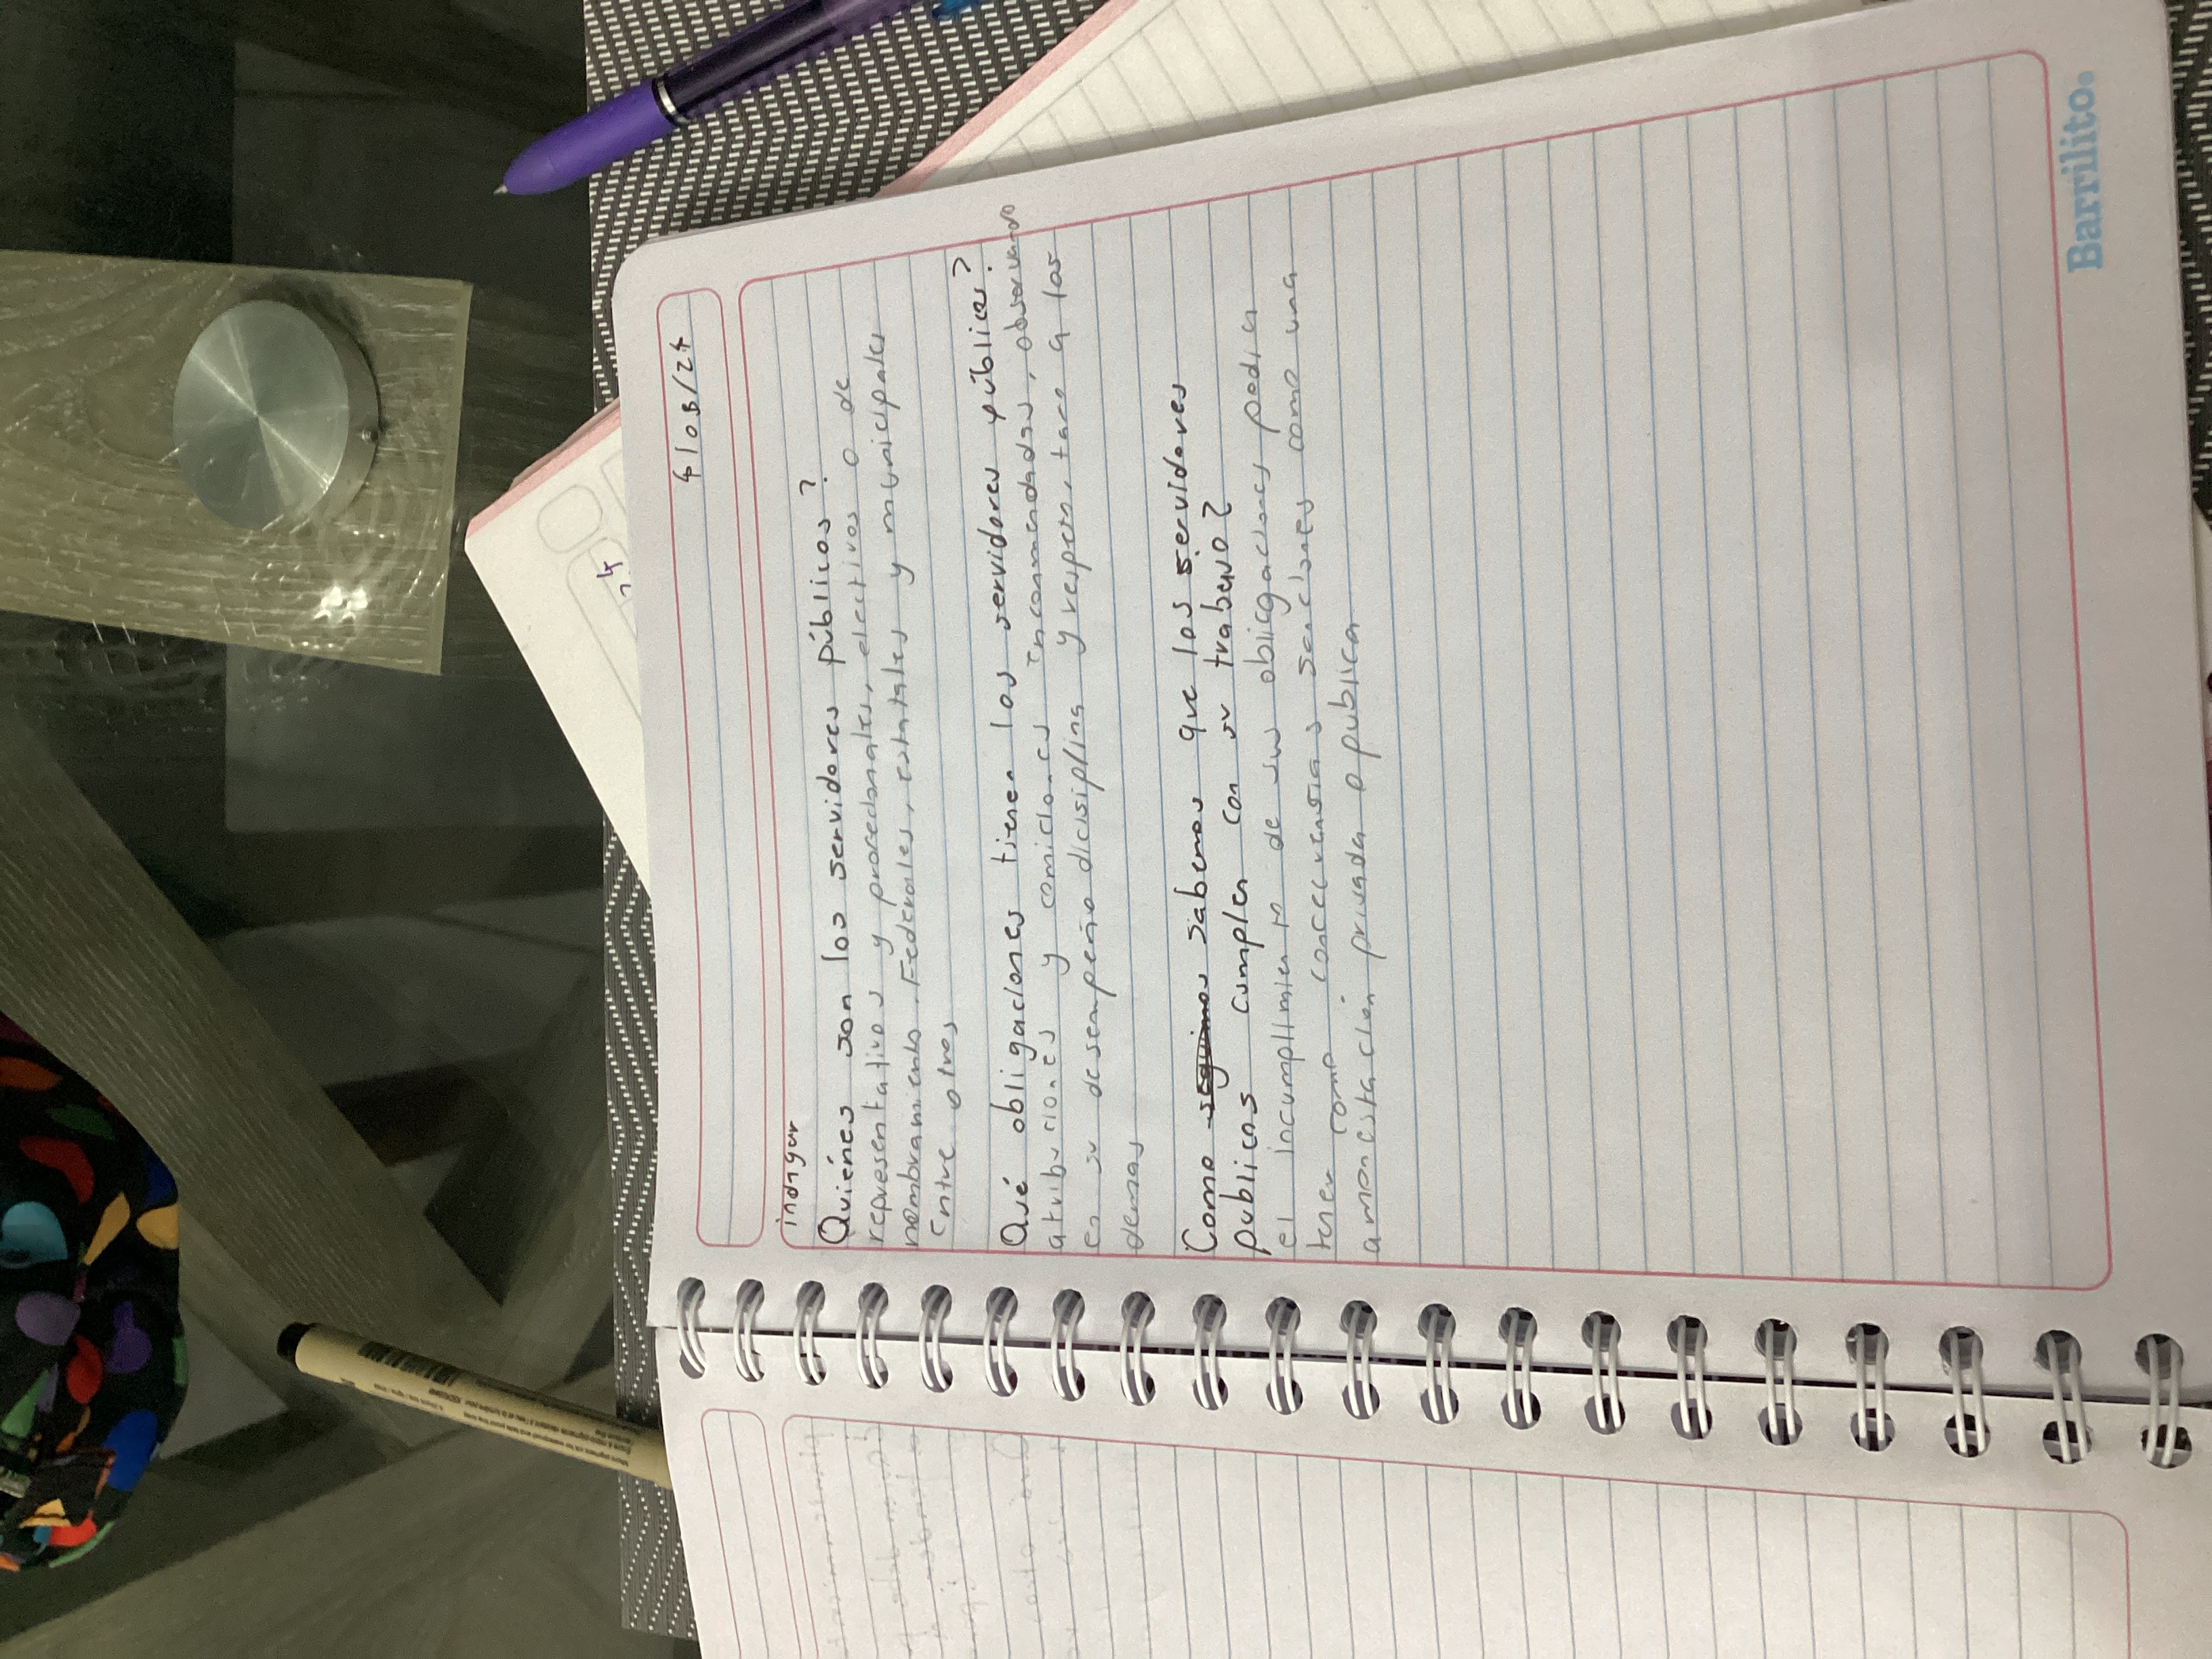 4/03/24
indagar
Quiénes son los servidores públicos?
representativos y procedionales, electivos o de
nombramiento. Federales, estatales y municipales
Entre otros
Qué obligaciones tienen los servidores públicos?
atribuciones y comiciones encomendadas, observando
en su desempeño dicisiplina y respeto, tano a los
demas
Como seguimos sabemos que los servidores
publicos cumplen con su trabajo?
el incumplimien to de sus obligaciones podia
tener como concecuensias sanciones como una
amonestación privada o publica
Barrilito.